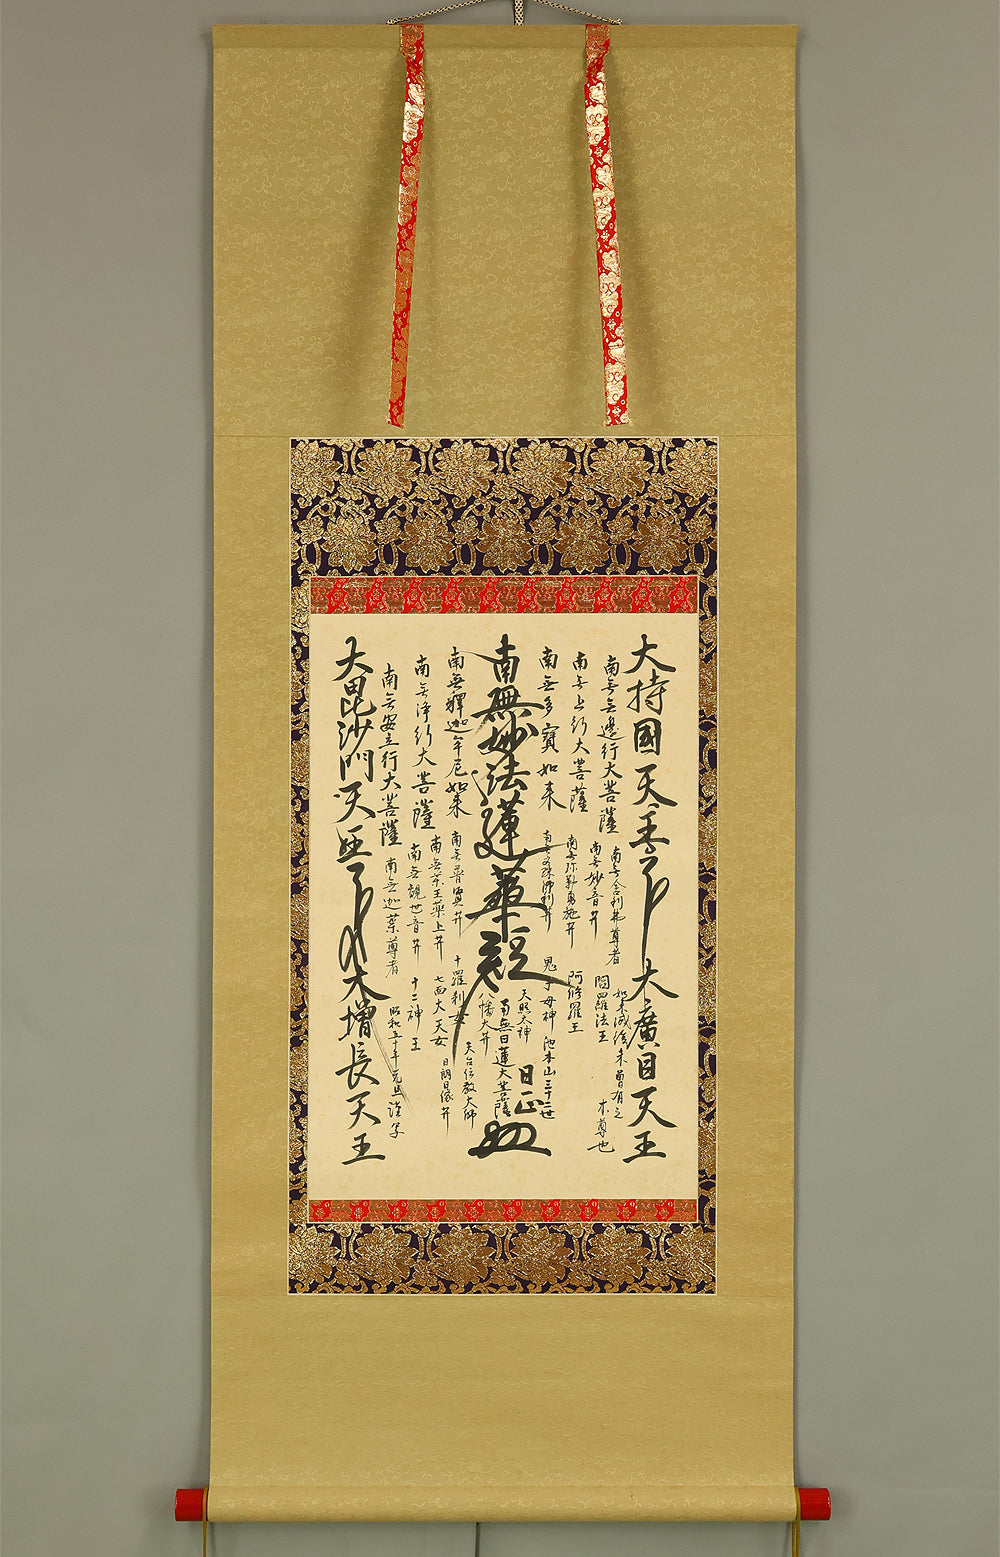 大持國天王
大廣目天王
南無無邊行大菩薩
南無舍利弗尊者
如来滅後未曽有之
本尊也
南無上行大菩薩
南無妙音菩
閻羅法王
南無多寳如来
南無弥勒菩
阿修羅王
鬼子母神
池本山三十二世
南無妙法蓮華経
天照大神
南無日蓮大菩薩
日正
八幡大菩
天台伝教大師
南無釋迦牟尼如来
南無普賢菩
十羅刹女
南無浄行大菩薩
南無薬王薬上菩
七面大天女
日朗日像菩
南無安立行大菩薩
南無観世音菩
十二神王
南無迦葉尊者
昭和五十年元旦謹写
大毘沙門天王
大増長天王